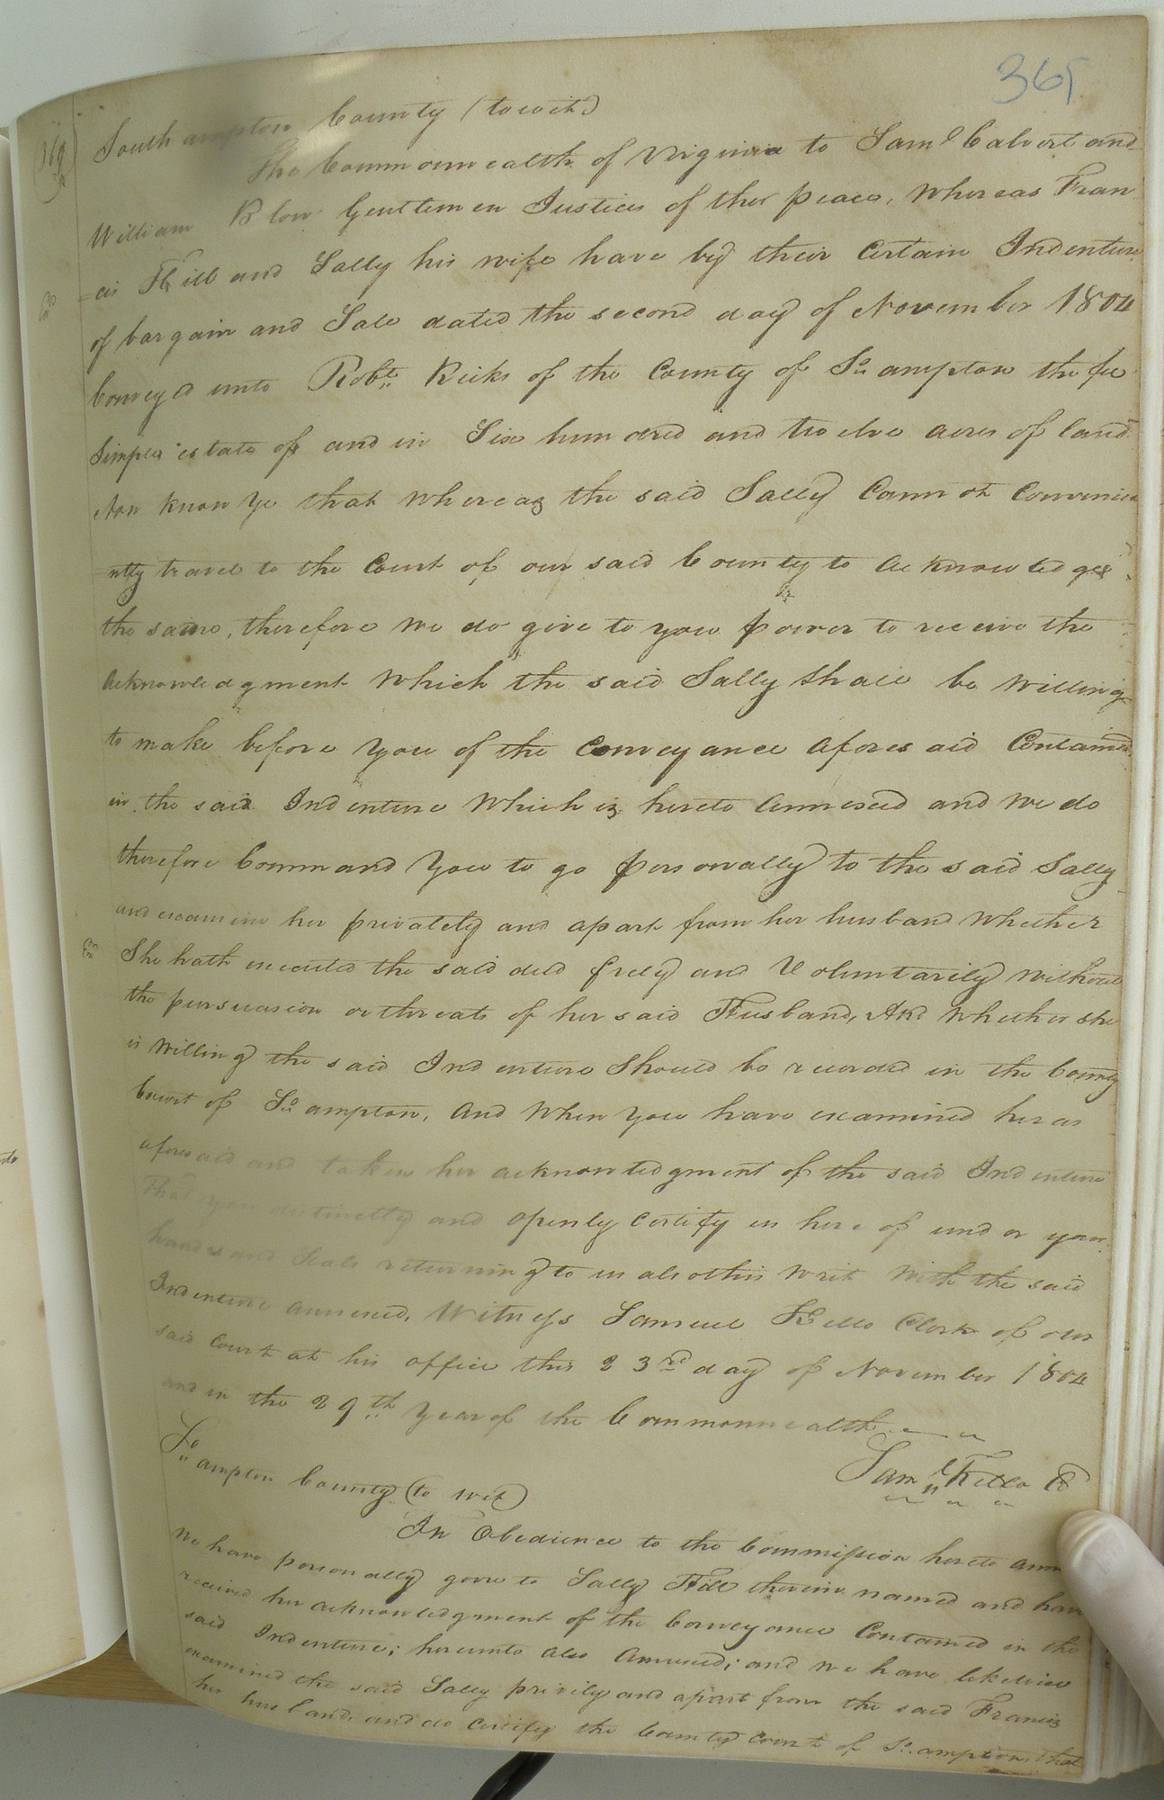 365
369
Southampton County (towit)
The Commonwealth of Virginia to Saml Calvert and
William Blow Gentlemen Justices of the peace, Whereas Fran
=cis Hill and Sally his wife have by their Certain Indenture
of bargain and Sale dated the second day of November 1804
Conveyed unto Robt. Ricks of the County of So.ampton the fee
Simple estate of and in Six hundred and twelve acres of land
Now Know Ye that whereas the said Sally Cannot Convenie
=ntly travel to the Court of our said County to acknowledge
the same, therefore We do give to you power to receive the
acknowledgment Which the said Sally Shall be Willing
to make before you of the Conveyance aforesaid Contained
in the said Indenture Which is hereto annexed and We do
therefore Command You to go personally to the said Sally
and examine her privately and apart from her husband Whether
She hath executed the said deed freely and Voluntarily without
the pursuasion or threats of her said Husband, And Whether she
is Willing the said Indenture Should be recorded in the County
Court of So.ampton, And When you have examined her as
aforesaid and taken her acknowledgment of the said Indenture
That you distinctly and openly certify us here of under your
hands and Seals returning to us also this Writ With the said
Indenture annexed, Witness Samuel Kello Clerk of our
said Court at his office this 23rd day of November 1804
and in the 29th Year of the Commonwealth
Saml. Kello
So.ampton County (to wit)
In Obedience to the Commission hereto ann
We have personally gone to Sally Hill therein named and have
received her acknowledgment of the Conveyance Contained in the
said Indenture; hereunto also Annexed; and We have likewise
examined the said Sally privily and apart from the said Francis
her husband, and do certify the County Court of So.ampton, that